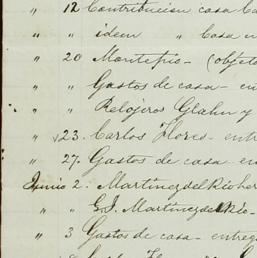 " 12 Contribucion casa Ca
" " idem " Casa en
" 20 Montepio - (objeto
" " Gastos de casa - en
" " Relojeros Glahn y
" 23. Carlos Flores - entre
" 27. Gastos de casa en
Junio 2. Martinez del Rio her
" " G. J. Martinez del Rio -
" 3 Gastos de casa - entreg